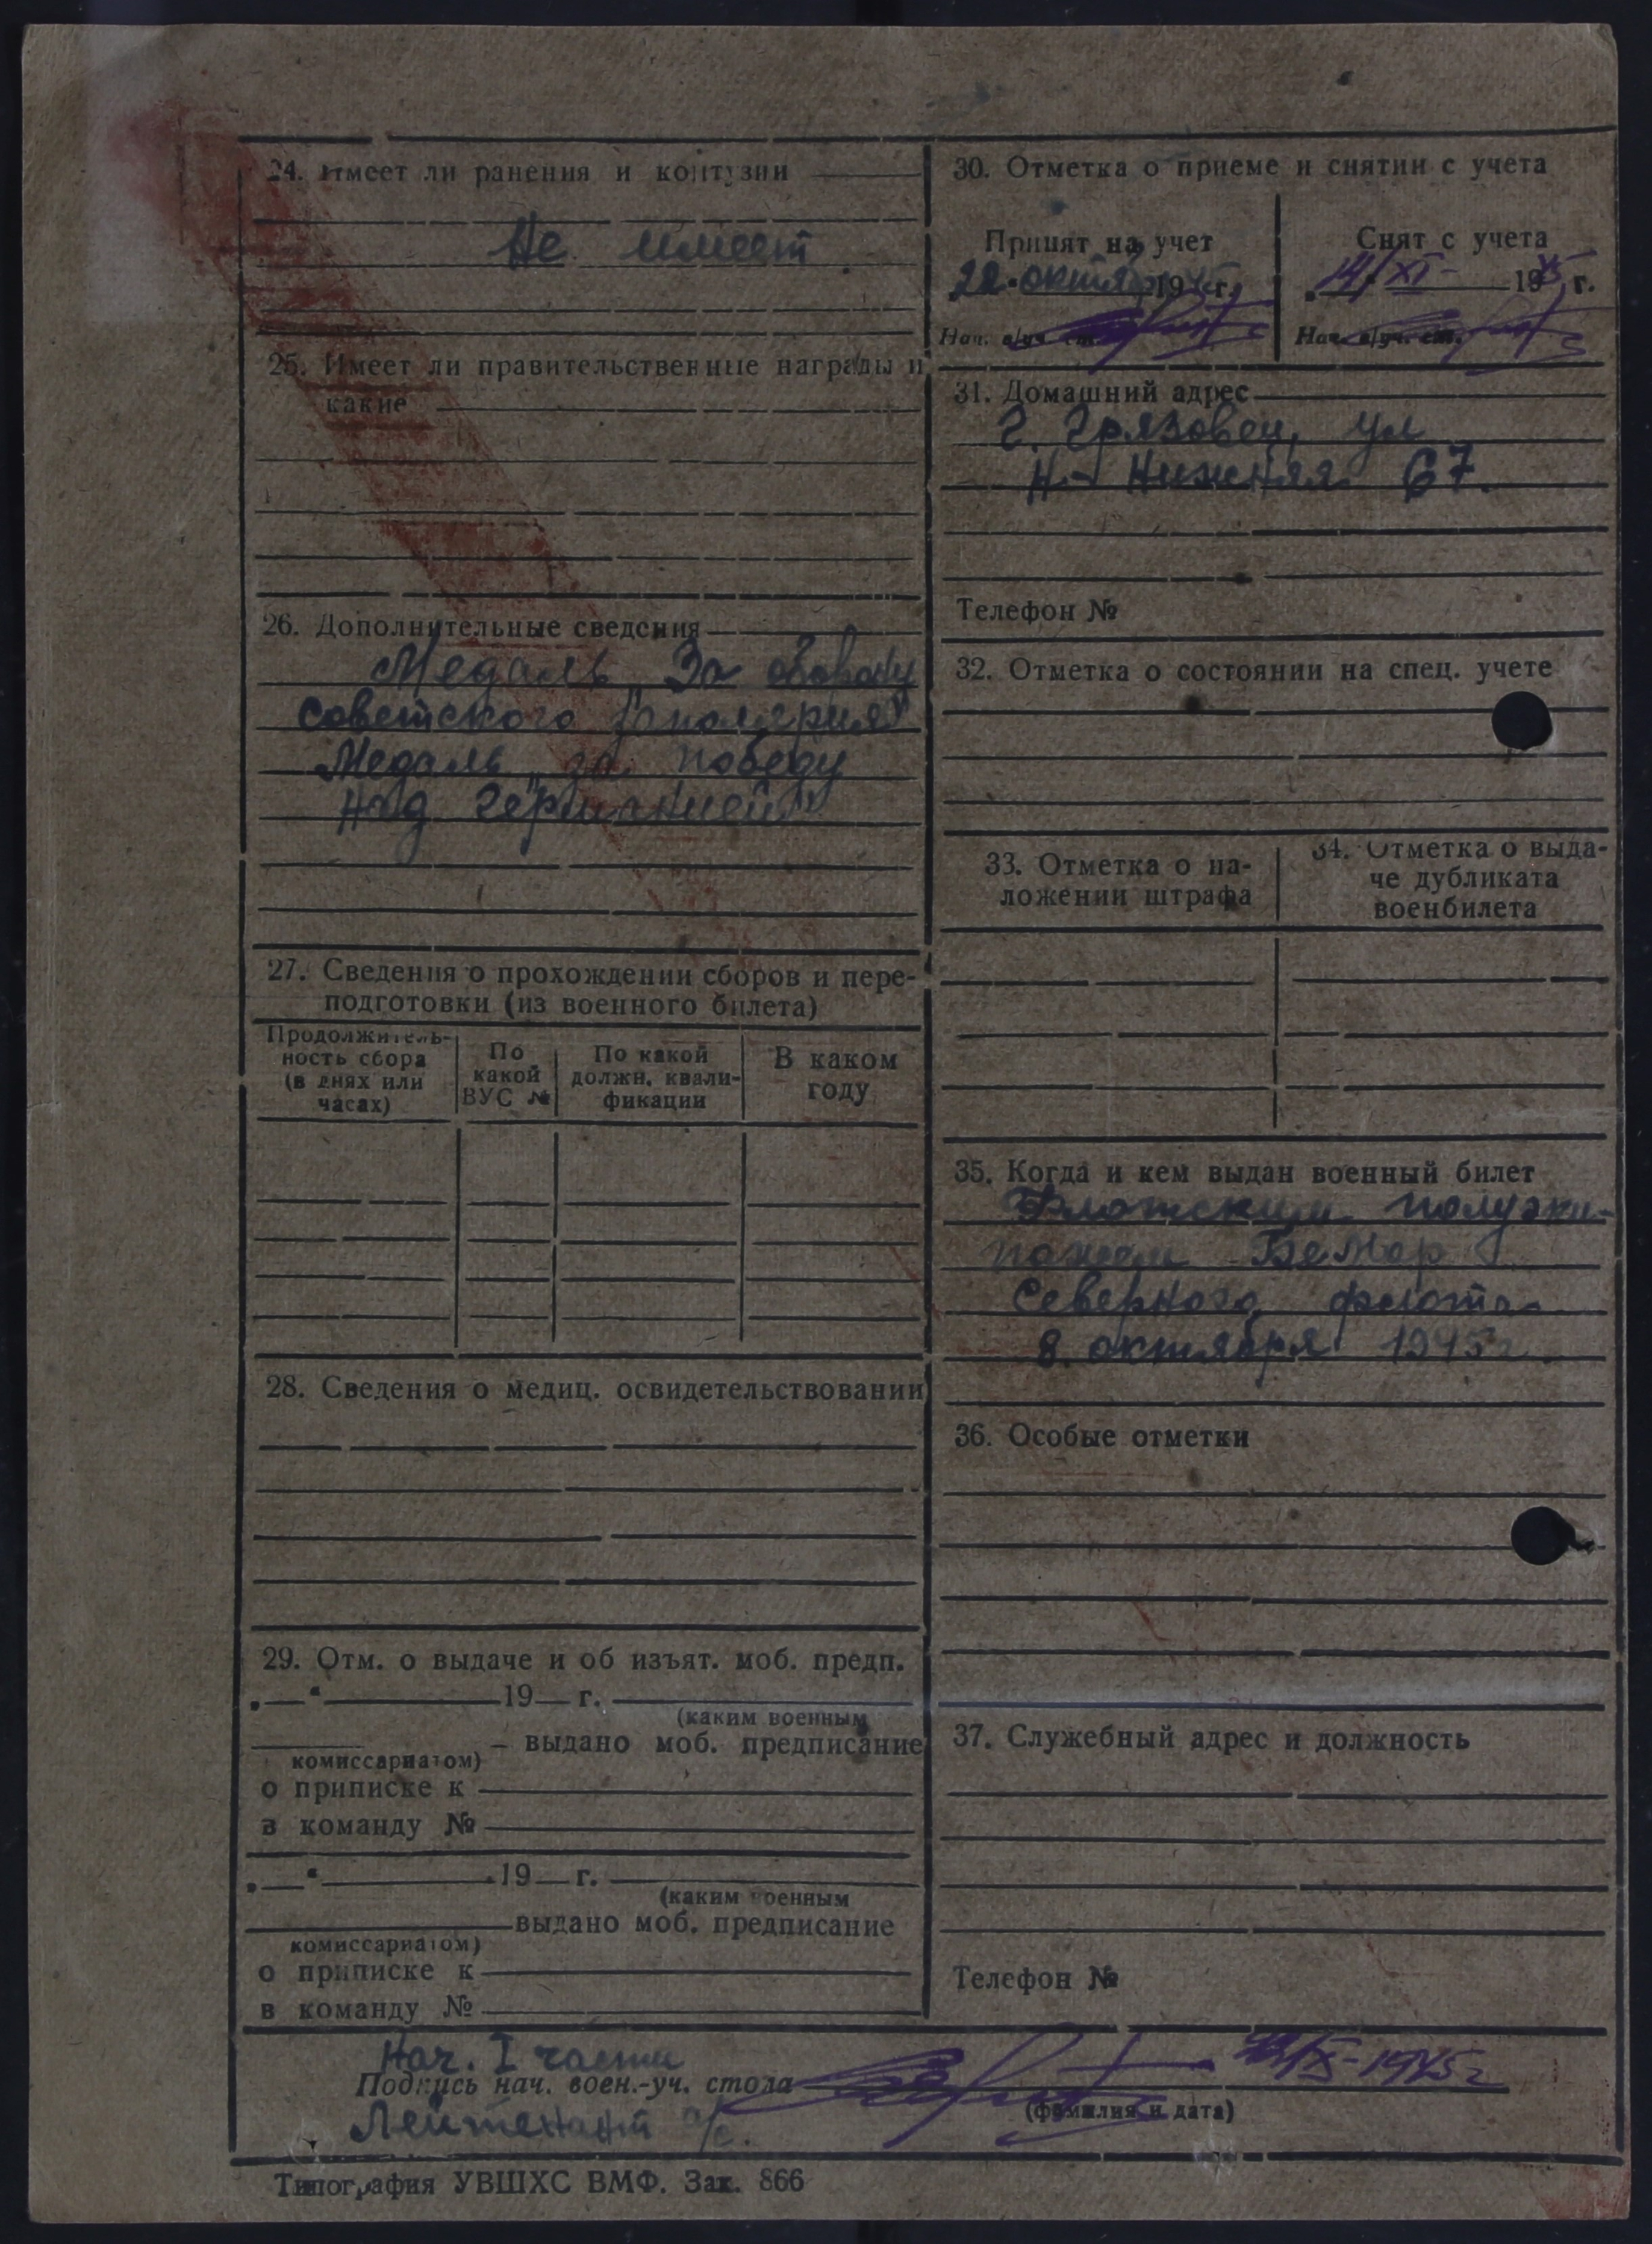 24. Имеет ли ранения и контузии
Не имеет
25. Имеет ли правительственные награды и
какие
26. Дополнительные сведения
Медаль „За оборону
советского заполярия"
Медаль „за победу
над германией"
27. Сведения о прохождении сборов и пере-
подготовки (из военного билета)
Продолжитель-
ность сбора
(в днях или
часах)
По
какой
ВУС №
По какой
должн. квали-
фикации
В каком
году
28. Сведения о медиц. освидетельствовании
29. Отм. о выдаче и об изъят. моб. предп.
„ “ 19 г.
(каким военным
выдано моб. предписание
комиссариатом)
о приписке к
в команду №
„ “ 19 г.
(каким военным
выдано моб. предписание
комиссариатом)
о приписке к
в команду №
30. Отметка о приеме и снятии с учета
Принят на учет
22 октяб 1945 г.
Нач. в/уч. ст.
Снят с учета
14/XI- 1945 г.
Нач. в/уч. ст.
31. Домашний адрес
г. Грязовец, ул
Н.- Нижняя 67.
Телефон №
32. Отметка о состоянии на спец. учете
33. Отметка о на-
ложении штрафа
34. Отметка о выда-
че дубликата
военбилета
35. Когда и кем выдан военный билет
Флотским полуэки-
пажем БеМор
Северного флота
8 октября 1945г.
36. Особые отметки
37. Служебный адрес и должность
Телефон №
Нач. I части
Подпись нач. воен.-уч. стола
X-1945г
Лейтенант а/с.
(фамилия и дата)
Типография УВШХС ВМФ. Зак. 866